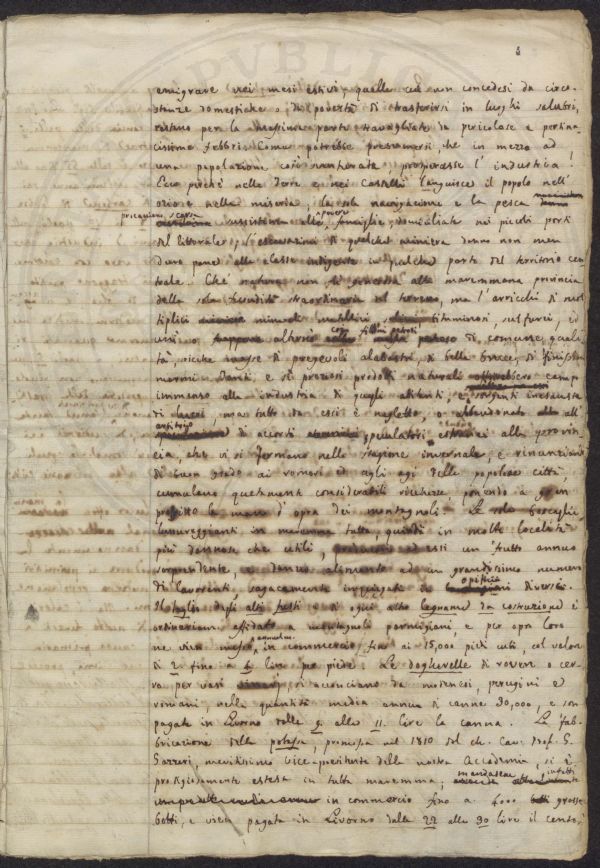 emigrare nei mesi estivi, quelle cui non concedesi da circo-
stanze domestiche o di povertà di trasferirsi in luoghi salubri,
restano per la massima parte travagliate da pericolose e pertina-
cissime febbri. Come potrebbe presumersi che in mezzo ad
una popolazione così , prosperasse l'industria!
Ecco perchè nelle Terre e nei Castelli languisce il popolo nell'
ozio e nella miseria; la sola navigazione e la pesca danno
precaria, e scarsa sussistenza alle povere famiglie domiciliate nei piccoli porti
del littorale; l'escavazione di qualche miniera danno non men
duro pane alla classe indigente in qualche parte del territorio cen-
trale. Chè natura non fu generosa alla maremmana provincia
della sola fecondità straordinaria del terreno, ma l'arricchì di mol-
tiplici minerali metallici bituminosi, sulfurei, ed
di comune quali-
tà, ricche masse di pregevoli alabastri, di belle brecce, di finissimi
marmi. Tanti e sì preziosi prodotti naturali offrirebbero campo
immenso alla industria di quegli abitanti, e sorgenti inesauste
di lucri, ma tutto da essi è negletto, o abbandonato all'
di accorti speculatori estranei alla provin-
cia, che vi si fermano nella stagione invernale e rinunziando
di buon grado ai romori ed agli agi delle popolose città,
cumulano quetamente considerabili ricchezze, ponendo a gran
profitto la mano d'opra dei montagnoli. Le sole boscaglie
lussureggianti in maremma tutta, quindi in molte località
più dannose che utili, ad essi un frutto annuo
sorprendente, e danno alimento ad un grandissimo numero
di lavoranti, sagacemente impiegati in opificii diversi.
Il taglio degli alti fusti e di ogni altro legname da costruzione è
ordinariam. affidato a montagnoli parmigiani, e per opra loro
ne vien messo annualm. in commercio fino ai 15,000 piedi cubi, col valore
di 2 fino a 6 lire per piede. Le dogherelle di rovere o cer-
ro per vasi vinarj, si acconciano da modenesi, perugini ed
romani, nella quantità media annua di canne 30,000, e son
pagate in Livorno dalle 9 alle 11 lire la canna. La fab-
bricazione della potassa, promossa nel 1810 dal ch. Cav. Prof. G.
Gazzeri, meritissimo Vice-presidente della nostra Accademia, si è
prodigiosamente estesa in tutta maremma,
in commercio fino a 4000 grosse
botti, e vien pagata in Livorno dalle 22 alle 30 lire il cento;